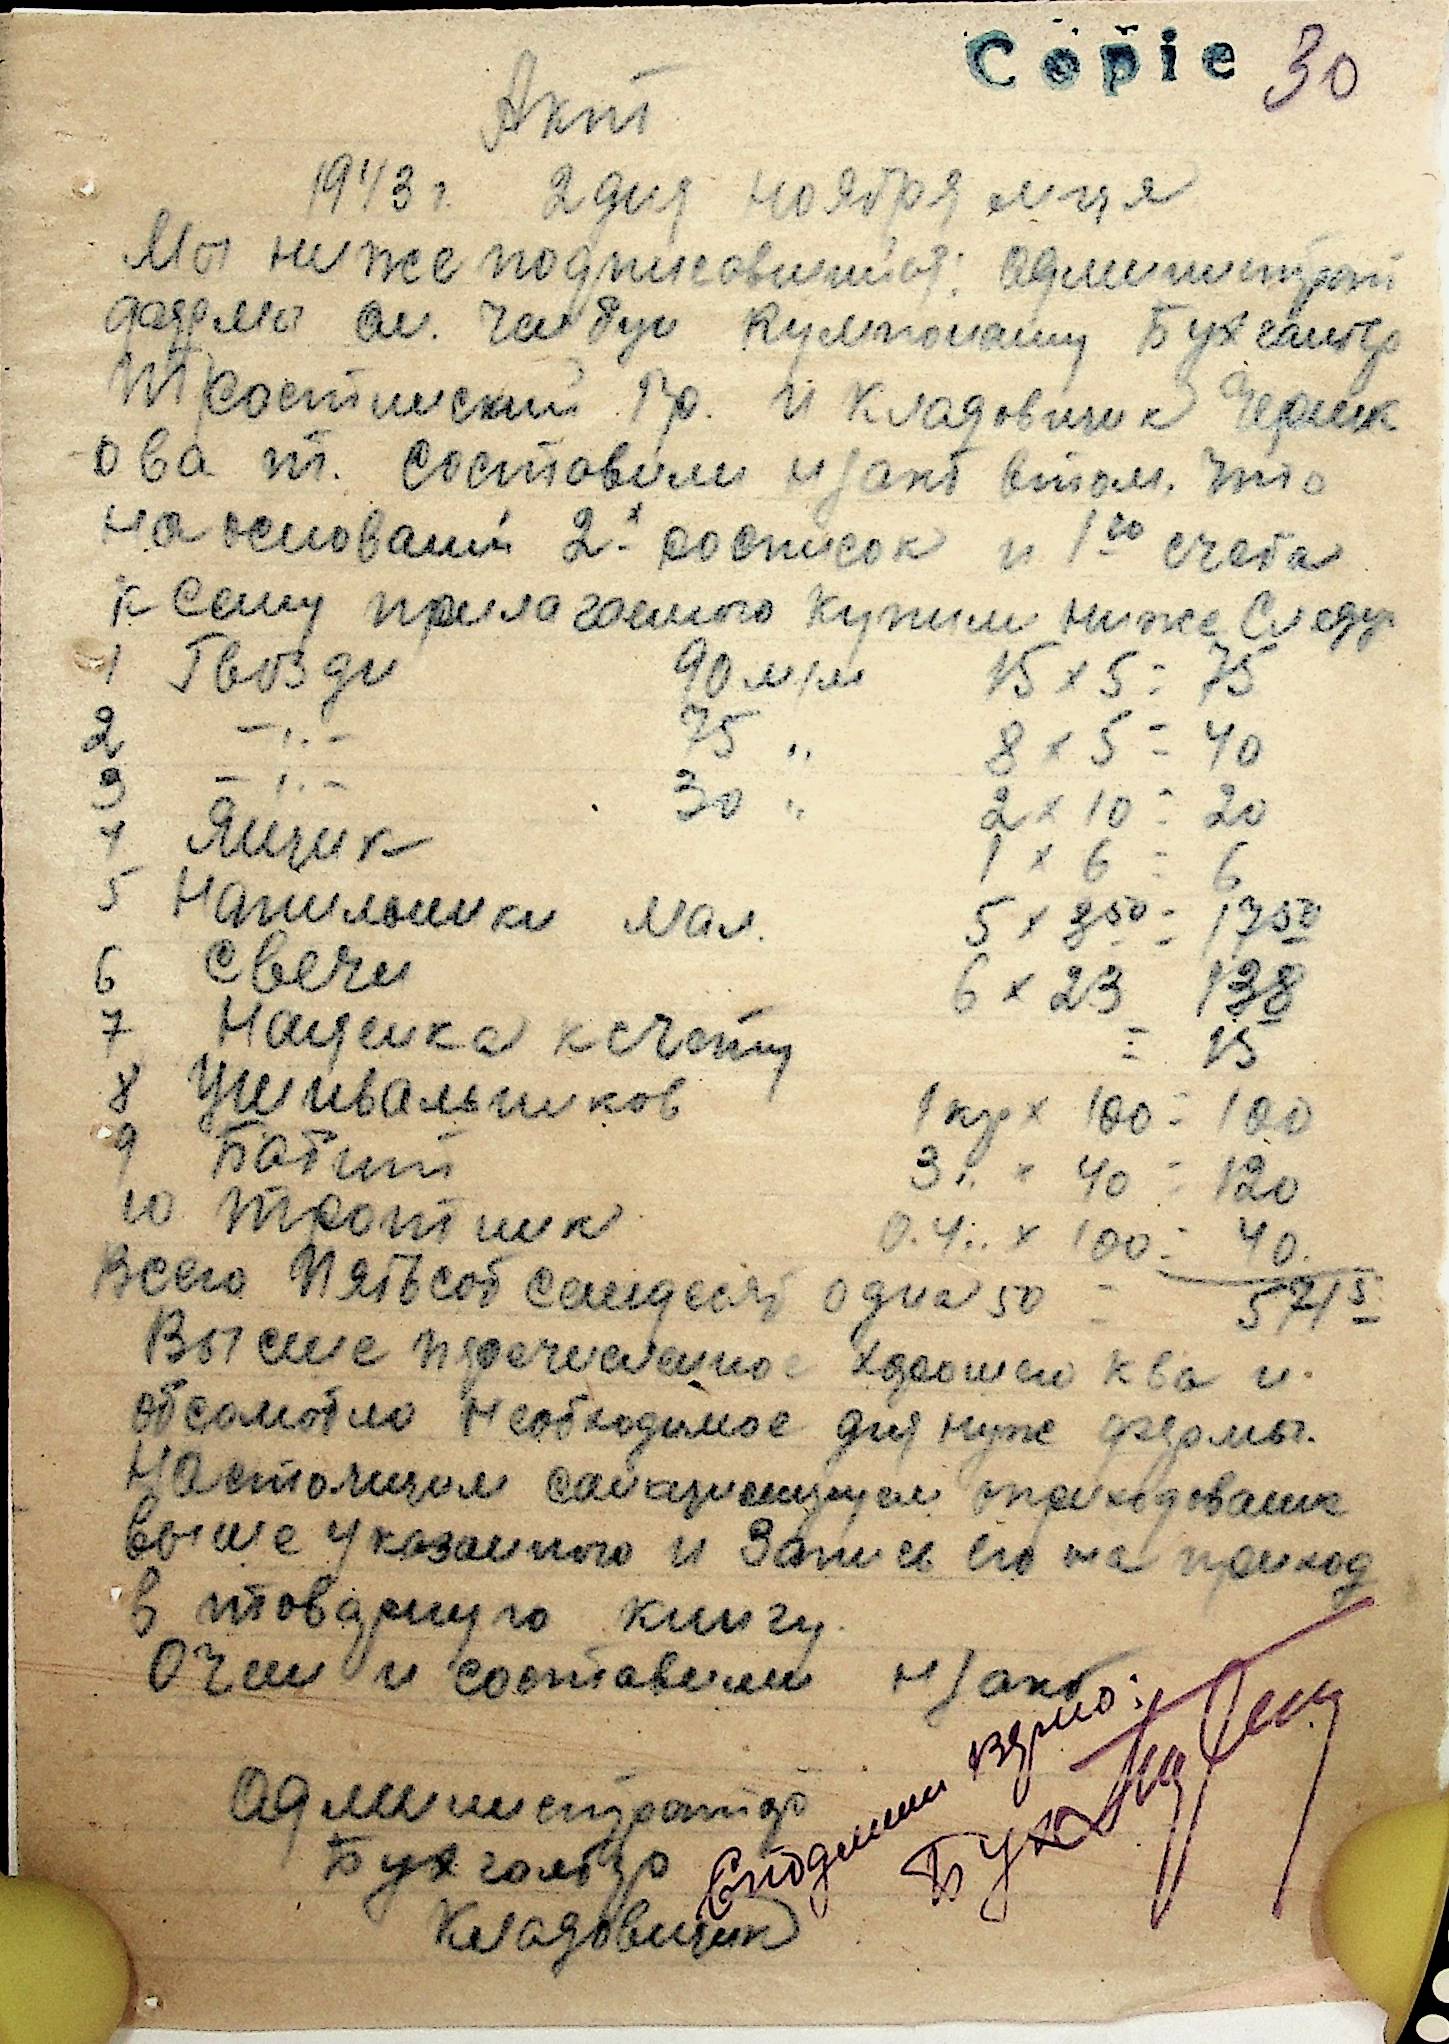 Copie 30
Акт
1943 г. 2 дня ноября м-ця
Мы ниже подписовшийся; Администрат
фермы ом. Кулипонашу Бухгалтер
Тростинский Гр. и Кладовщик Черник
ова т. составили н/акт втом. что
на оснований 2-х росписок и 1го счета
к сему прилагаемого купили ниже Следу.
1 Гвозди 90 м/м 15 х 5 = 75
2 -"- 75 " 8 х 5 = 40
3 -"- 30 " 2 х 10 = 20
4 Ящик 1 х 6 = 6
5 Напильники мал. 5 х 3 50 = 17 50
6 Свечи 6 х 23 138
7 Наценка к счету = 15
8 Умивальников 1 кгр х 100 = 100
9 Батит 3 " " 40 = 120
10 Тротник 0.4 " х 100 = 40.
Всего Пятьсот семдесят одна 50 = 571 5
Высше перечисленное хорошего ква и.
абсолютно необходимое для нуж фермы.
Настоящим санкционируем оприходование
выше указанного и Запись его на приход
в товарную книгу.
О чем и составили н/акт
Администратор
Бухгалтер
Кладовщик
Сподлинн верно:
Бухг